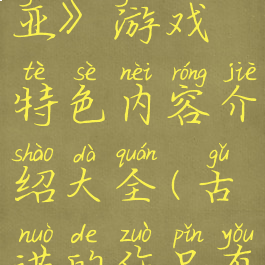 亚》游戏
tè sè nèi róng jiè
特色内容介
shào dà quán gǔ
绍大全(古
nuò de zuò pǐn yǒu
诺的作品有